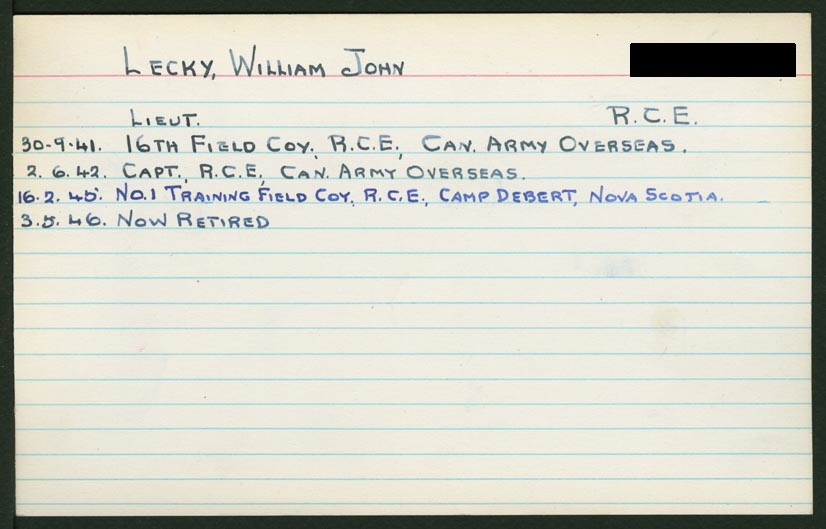 LECKY, WILLIAM JOHN
LIEUT. R.C.E.
30-9-41. 16TH FIELD COY. R.C.E., CAN. ARMY OVERSEAS.
2.6.42. CAPT., R.C.E., CAN. ARMY OVERSEAS.
16.2.45. NO.1 TRAINING FIELD COY, R.C.E., CAMP DEBERT, NOVA SCOTIA.
3.5.46. NOW RETIRED